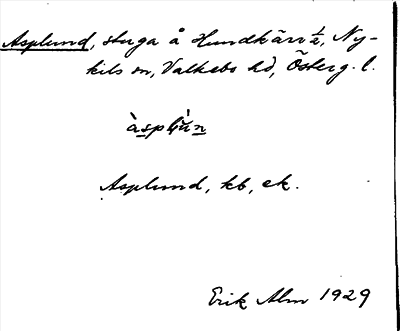 Asplund, stuga å Hundkärr ½, Ny-
kils sn, Valkebo hd, Österg. l.
àsplùn
Asplund, kb, ek.
Erik Alm 1929